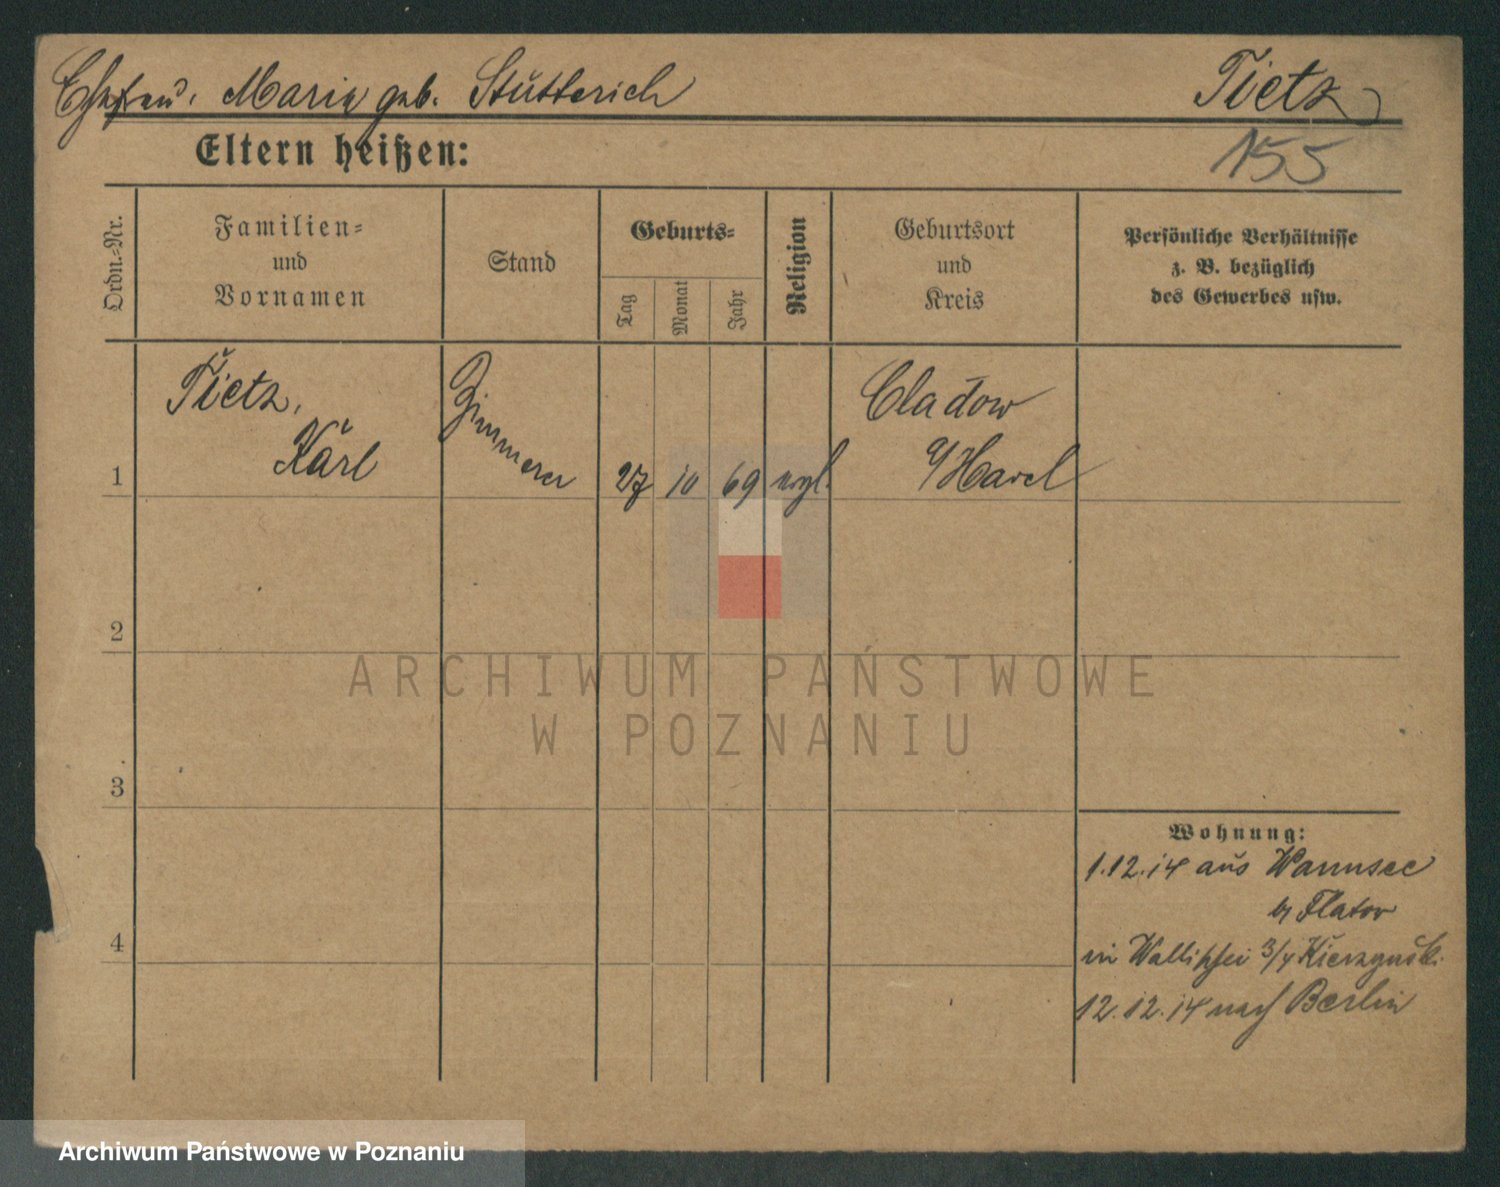 Ehefrau, Marie geb. Stutterich
Tietz
155
Eltern heißen:
Ordn.-Nr.
Familien-
und
Vornamen
Stand
Geburts-
Tag
Monat
Jahr
Religion
Geburtsort
und
Kreis
Persönliche Verhältnisse
z. B. bezüglich
des Gewerbes usw.
1
Tietz,
Karl
Zimmerer
27
10
69
evgl.
Cladow
a/Havel
2
3
4
Wohnung:
1.12.14 aus Wannsee
b/ Flatow
in Wallischei 3/4 Kierzynski.
12.12.14 nach Berlin
ARCHIWUM PAŃSTWOWE
W POZNANIU
Archiwum Państwowe w Poznaniu